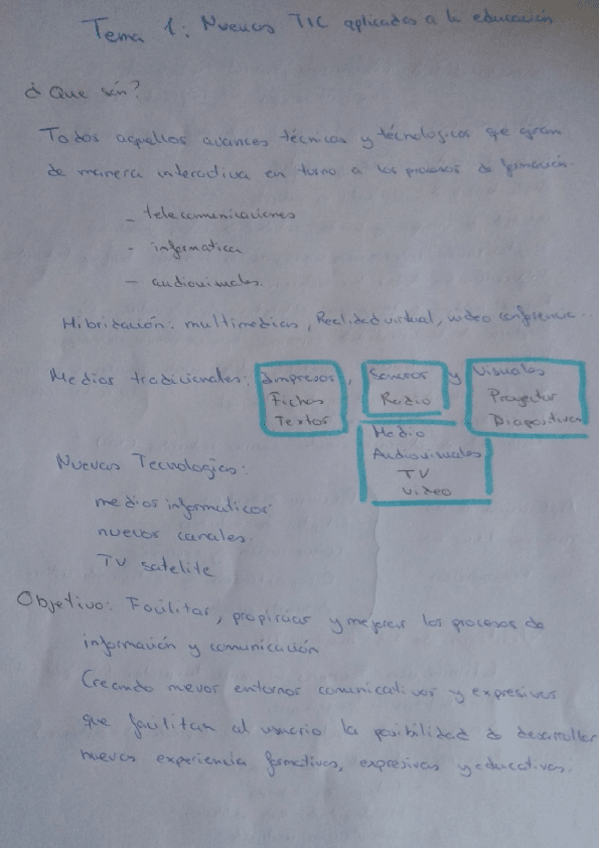 Tema 1: Nuevas TIC aplicadas a la educación
¿Que són?
Todos aquellos avances técnicos y técnologicos que giran
de manera interactiva en turno a los procesos de formación.
- telecomunicaciones
- informatica
- audiovisuales.
Hibridación: multimedias, Realidad virtual, video conferencia...
Medios tradicionales: Impresos, Sonoros y Visuales
Fichas Radio Proyector
Textos Diapositivas
Medio
Audiovisuales
TV
Video
Nuevas Tecnologias:
medios informaticos
nuevos canales.
TV satelite
Objetivo: Facilitar, propiciar y mejorar los procesos de
información y comunicación
Creando nuevos entornos comunicativos y expresivos
que facilitan al usuario la posibilidad de desarrollar
nuevas experiencia formativas, expresivas y educativas.